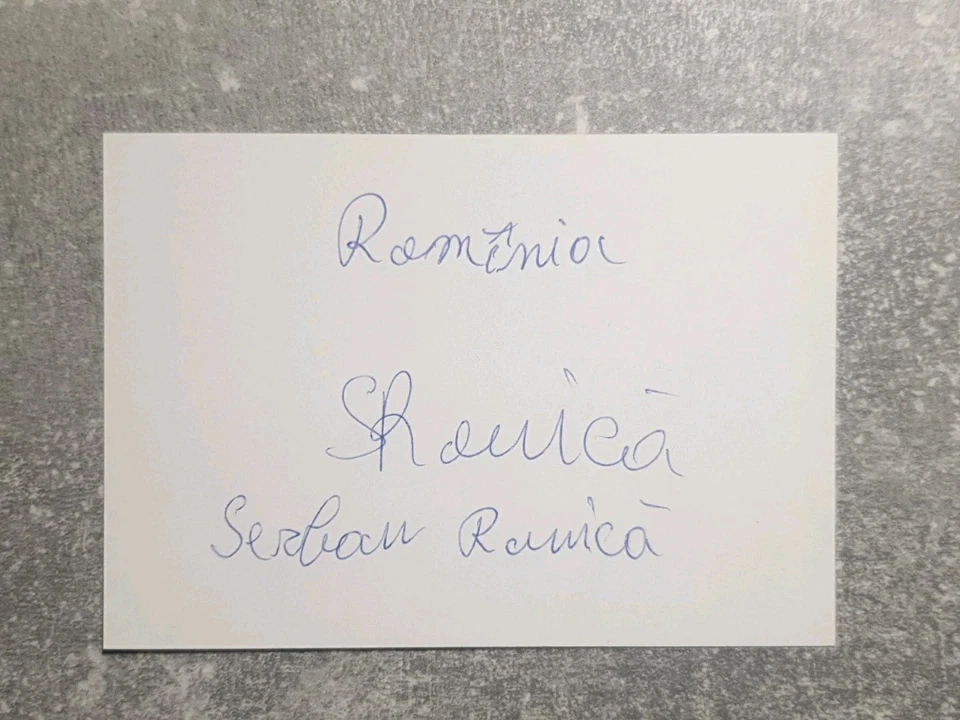 România
SRanică
Serban Ranică